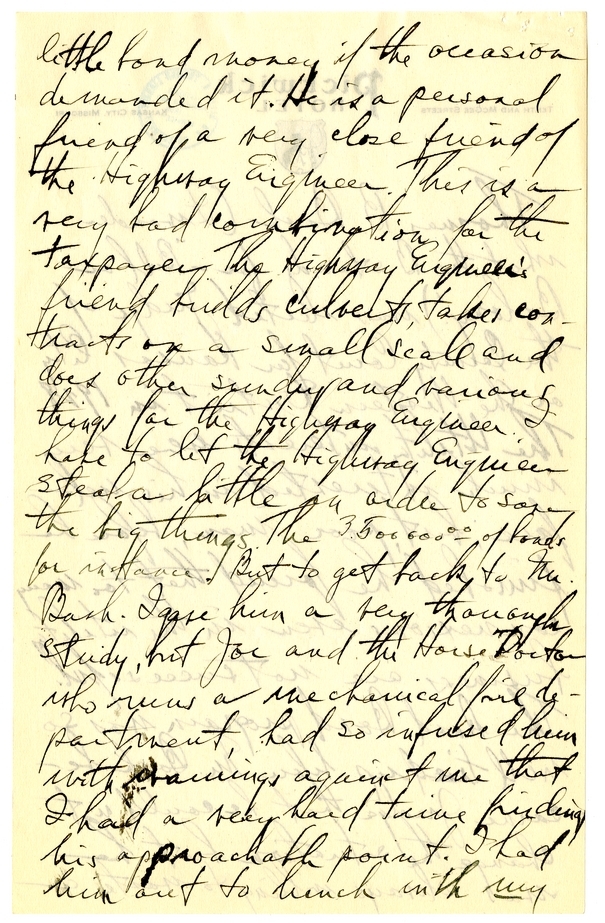 little bond money if the occasion
demanded it. He is a personal
friend of a very close friend of
the Highway Engineer. This is a
very bad combination for the
taxpayer. The Highway Engineer's
friend builds culverts, takes con-
tracts on a small scale and
does other sundry and various
things for the Highway Engineer. I
have to let the Highway Engineer
steal a little in order to save
the big things. The 3500000⁰⁰ of bonds
for instance. But to get back to Mr.
Bash. I gave him a very thorough
study, but Joe and the Horse Doctor
who runs a mechanical fire de-
partment, had so infused him
with warnings against me that
I had a very hard time finding
his approachable point. I had
him out to lunch with my